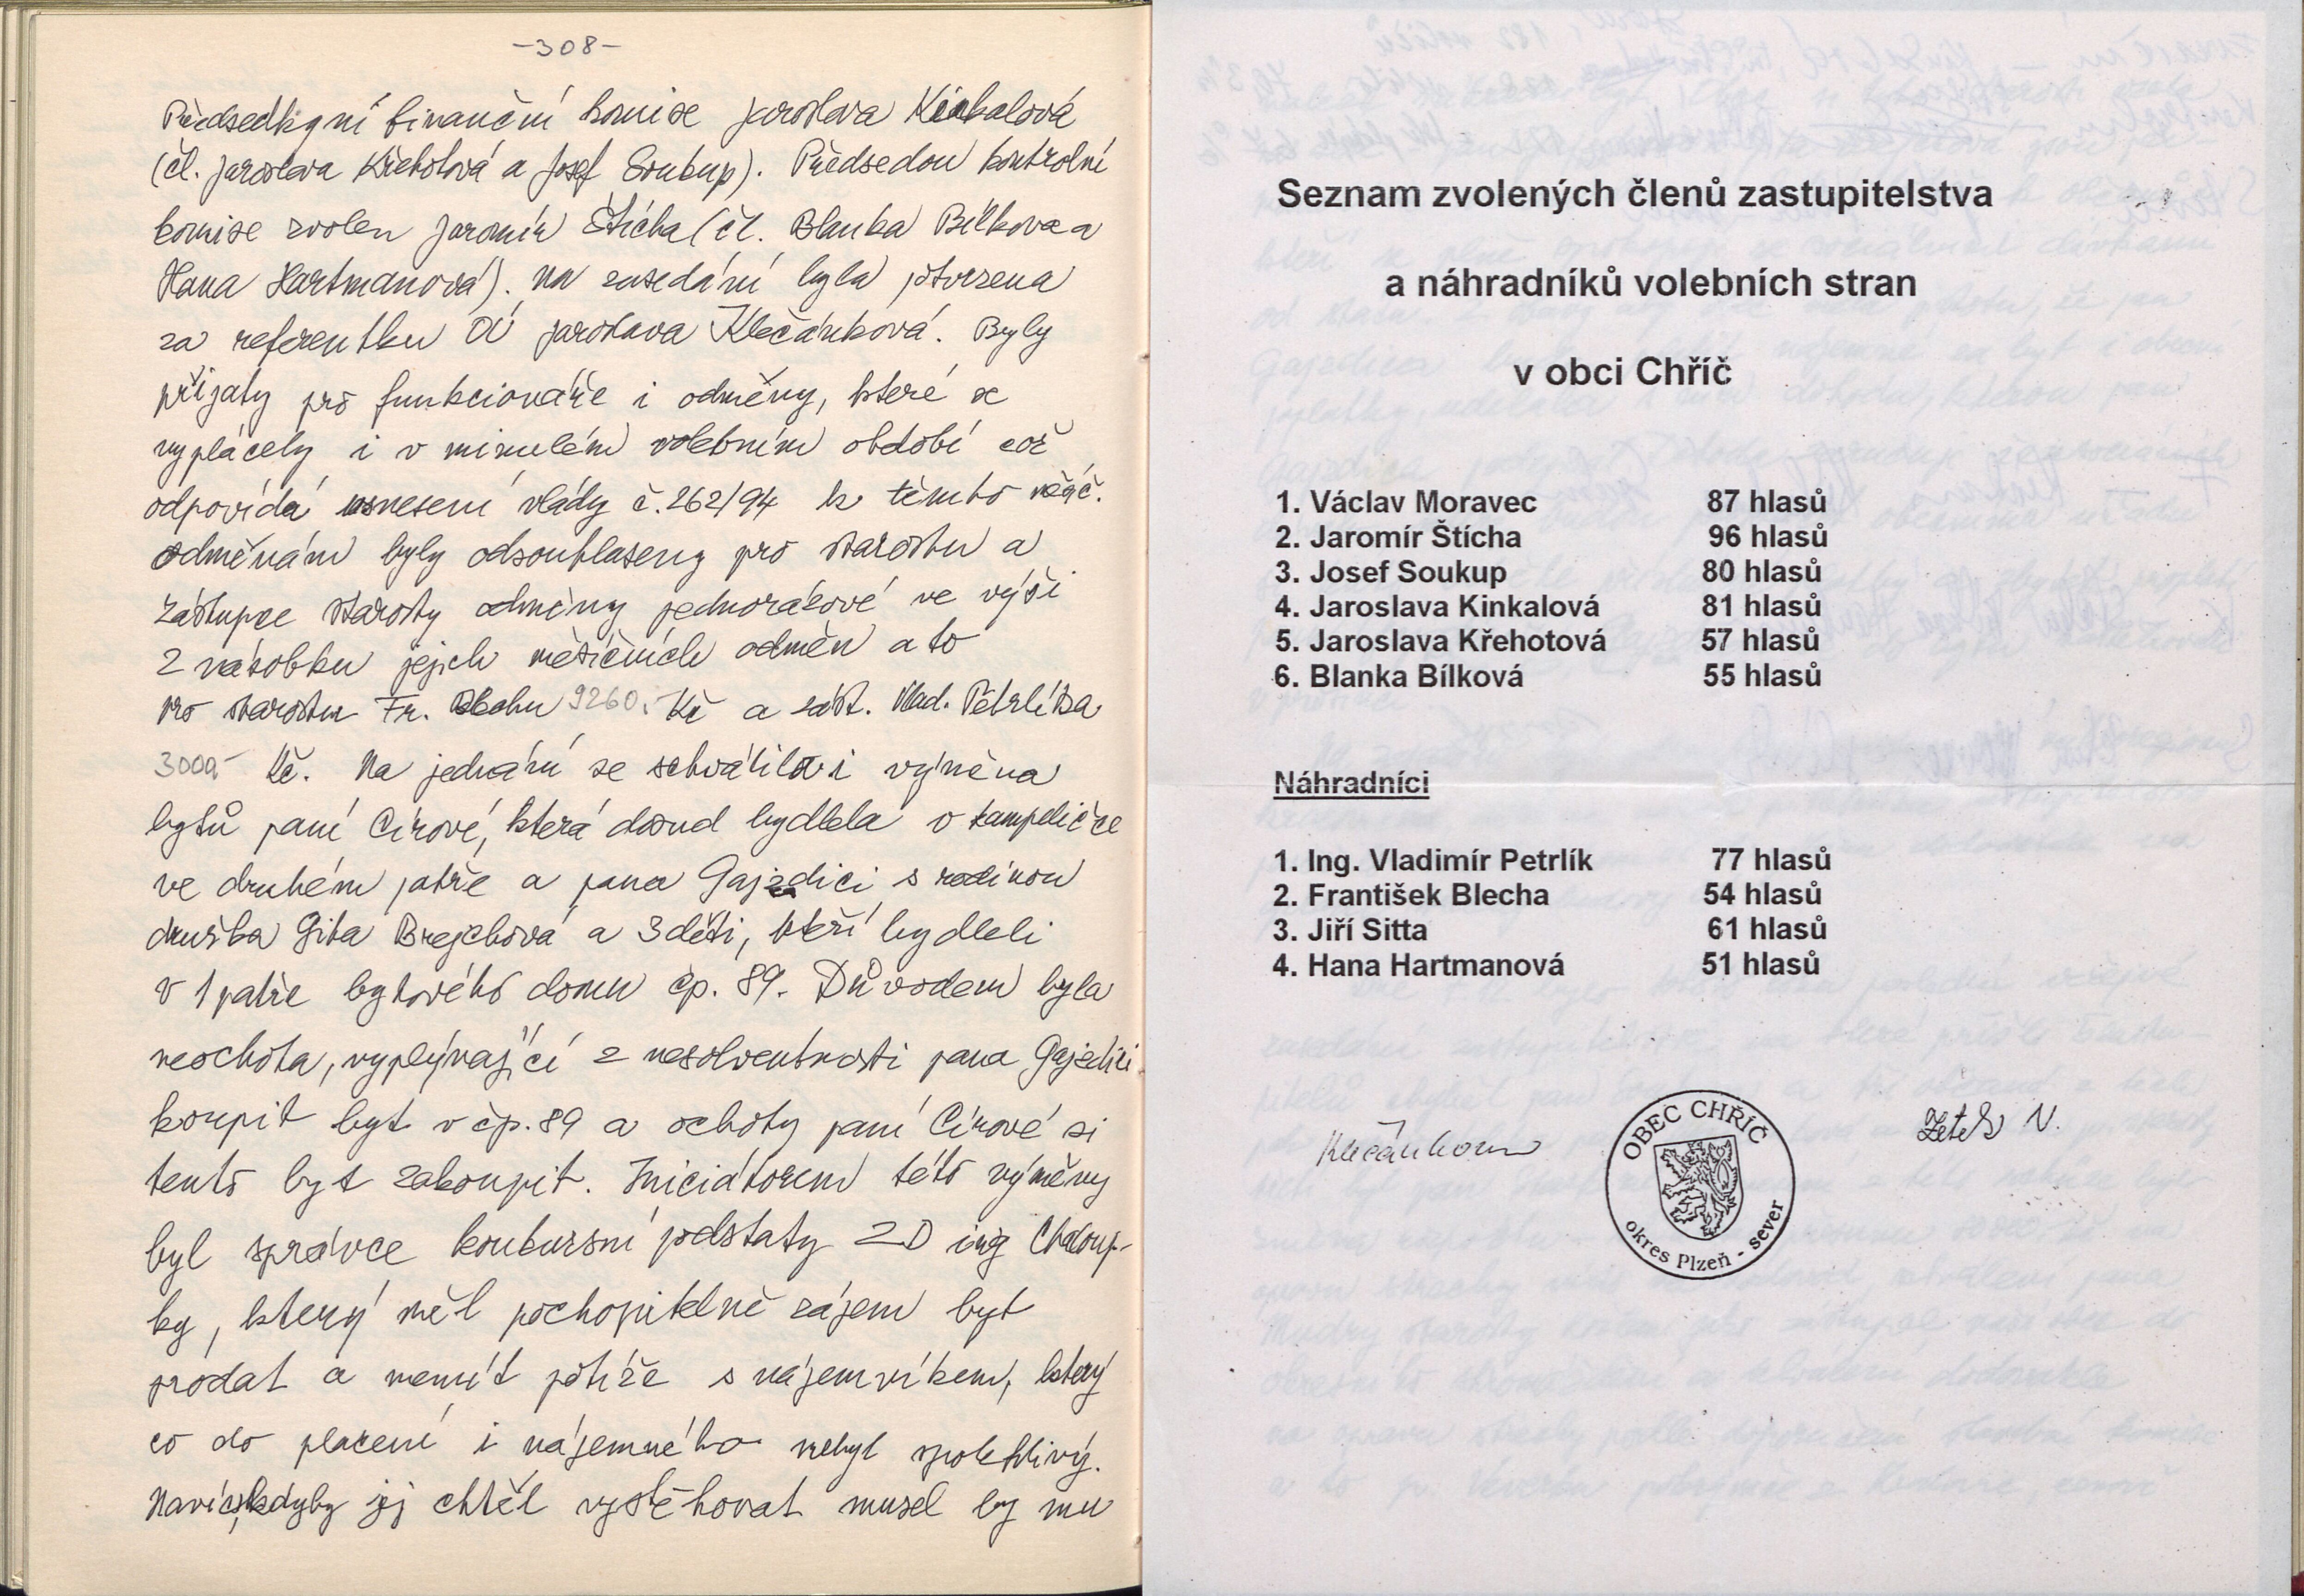 -308-
Předsedkyní finanční komise Jaroslava Kinkalová
(čl. Jaroslava Křehotová a Josef Soukup). Předsedou kontrolní
komise zvolen Jaromír Štícha (čl. Blanka Bílkova a
Hana Hartmanová). Na zasedání byla potvrzena
za referentku OÚ Jaroslava Klečánková. Byly
přijaty pro funkcionáře i odměny, které se
vyplácely i v minulém volebním období což
odpovídá usnesení vlády č. 262/94 k těmto
odměnám byly odsouhlaseny pro starostu a
zástupce starosty odměny jednorázové ve výši
2 násobku jejich měsíčních odměn a to
pro starostu Fr. 9260,- Kč a zást. Vlad. Petrlíka
3000,- Kč. Na jednání se schválila i výměna
bytů paní Cínové, která dosud bydlela v kampeličce
ve druhém patře a pana Gajdici s rodinou
družka Gita Brejchová a 3 děti, kteří bydleli
v 1 patře bytového domu čp. 89. Důvodem byla
neochota, vyplývající z nesolventnosti pana Gajdici
koupit byt v čp. 89 a ochoty paní Cínové si
tento byt zakoupit. Iniciátorem této výměny
byl správce konkursní podstaty ZD ing Chaloup-
ky, který měl pochopitelně zájem byt
prodat a nemít potíže s nájemníkem, který
co do placení i nájemného nebyl spolehlivý.
Navíc, kdyby jej chtěl vystěhovat musel by mu
Seznam zvolených členů zastupitelstva
a náhradníků volebních stran
v obci Chříč
1. Václav Moravec 87 hlasů
2. Jaromír Štícha 96 hlasů
3. Josef Soukup 80 hlasů
4. Jaroslava Kinkalová 81 hlasů
5. Jaroslava Křehotová 57 hlasů
6. Blanka Bílková 55 hlasů
Náhradníci
1. Ing. Vladimír Petrlík 77 hlasů
2. František Blecha 54 hlasů
3. Jiří Sitta 61 hlasů
4. Hana Hartmanová 51 hlasů
Klečánková
OBEC CHŘÍČ
okres Plzeň - sever